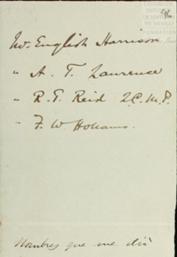 Mr. English Harrison
" A. T. Lawrence
" R. T. Reid Q.C. M.P.
" F. W. Hollams.
Nombres que me dió